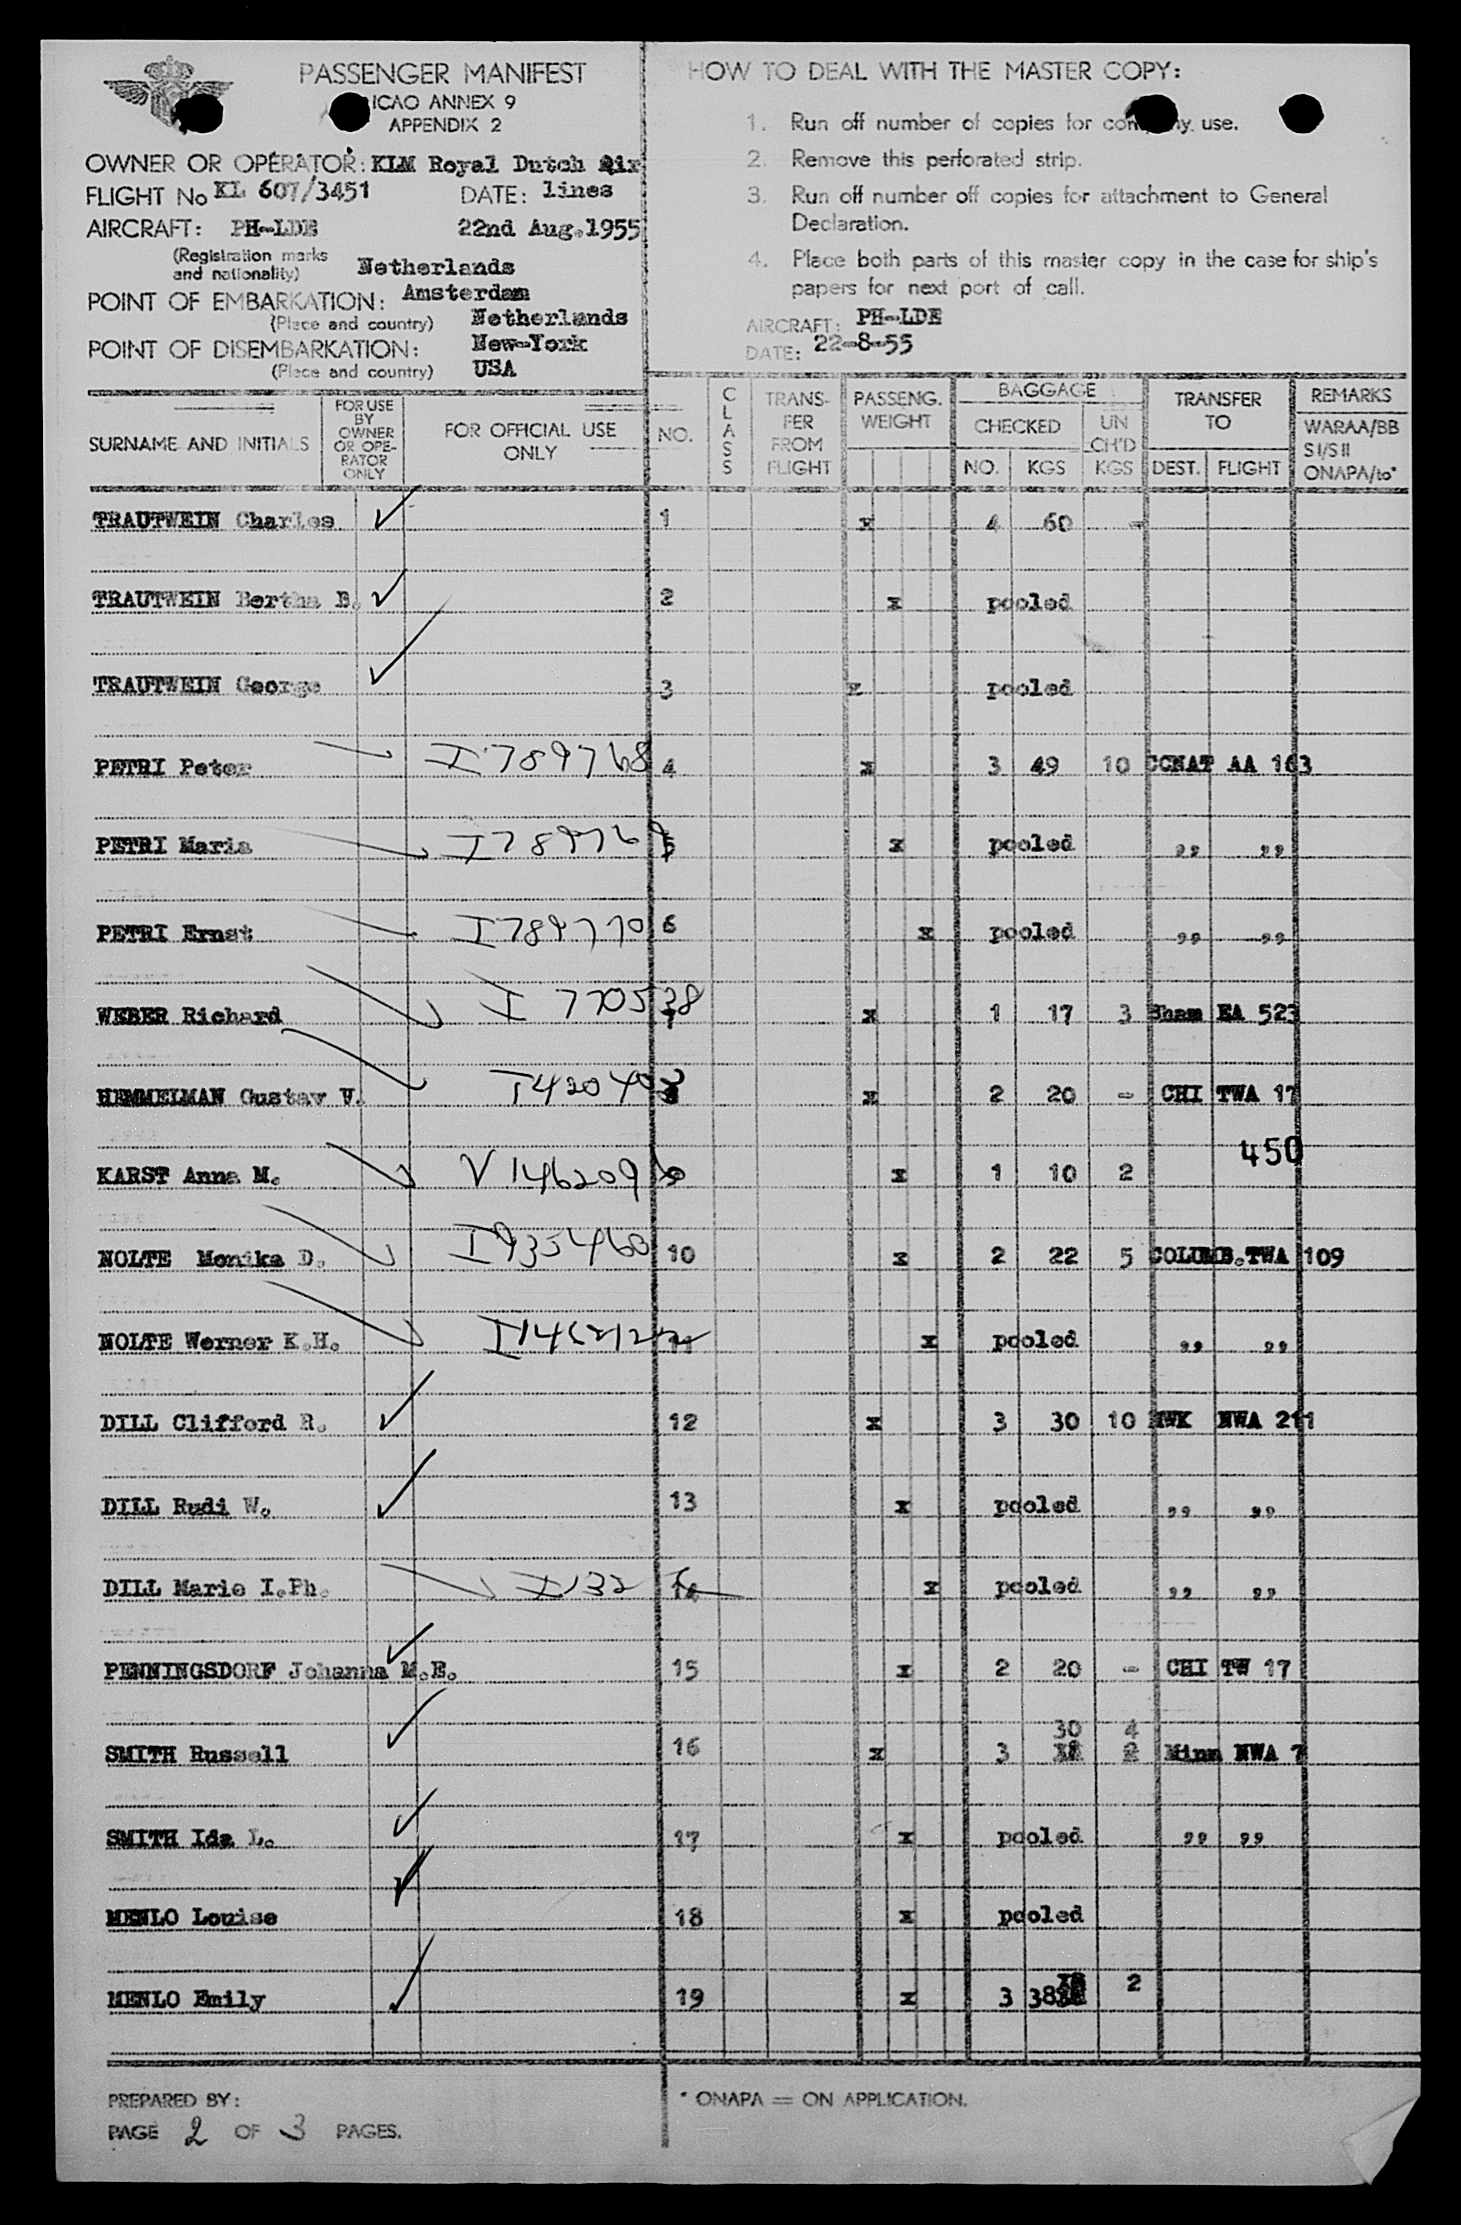 PASSENGER MANIFEST
ICAO ANNEX 9
APPENDIX 2
OWNER OR OPERATOR: KLM Royal Dutch Air
FLIGHT No KL 607/3451 DATE: lines
AIRCRAFT: PH-LDE 22nd Aug.1955
(Registration marks
and nationality) Netherlands
POINT OF EMBARKATION: Amsterdam
(Place and country) Netherlands
POINT OF DISEMBARKATION: New-York
(Place and country) USA
HOW TO DEAL WITH THE MASTER COPY:
1. Run off number of copies for company use.
2. Remove this perforated strip.
3. Run off number off copies for attachment to General
Declaration.
4. Place both parts of this master copy in the case for ship's
papers for next port of call.
AIRCRAFT: PH-LDE
DATE: 22-8-55
SURNAME AND INITIALS
FOR USE
BY
OWNER
OR OPE-
RATOR
ONLY
FOR OFFICIAL USE
ONLY
NO.
CLASS
TRANS-
FER
FROM
FLIGHT
PASSENG.
WEIGHT
BAGGAGE
CHECKED
NO. KGS
UN
CH'D
KGS
TRANSFER
TO
DEST. FLIGHT
REMARKS
WARAA/BB
SI/SII
ONAPA/to*
TRAUTWEIN Charles 1 x 4 60 -
TRAUTWEIN Bertha B. 2 x pooled
TRAUTWEIN George 3 x pooled
PETRI Peter I 789768 4 x 3 49 10 CCNAT AA 163
PETRI Maria I 789769 5 x pooled ,, ,,
PETRI Ernst I 789770 6 x pooled ,, ,,
WEBER Richard I 770538 7 x 1 17 3 Bham EA 523
HEMMELMAN Gustav V. 8 x 2 20 - CHI TWA 17
450
KARST Anna M. V 1462096 9 x 1 10 2
NOLTE Monika D. I 935460 10 x 2 22 5 COLUMB.TWA 109
NOLTE Werner K.H. 11 x pooled ,, ,,
DILL Clifford R. 12 x 3 30 10 MWK NWA 211
DILL Rudi W. 13 x pooled ,, ,,
DILL Marie I.Ph. I 132 14 x pooled ,, ,,
PENNINGSDORF Johanna M.E. 15 x 2 20 - CHI TW 17
30 4
SMITH Russell 16 x 3 2 Minn NWA 7
SMITH Ida L. 17 x pooled ,, ,,
MENLO Louise 18 x pooled
MENLO Emily 19 x 3 38 2
PREPARED BY:
PAGE 2 OF 3 PAGES.
* ONAPA = ON APPLICATION.